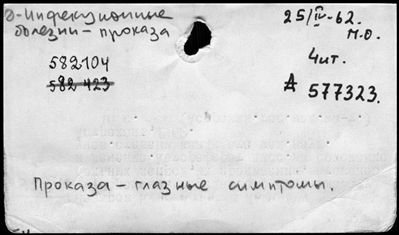 О-Инфекционные
болезни – проказа
25/IV-62.
М.О.
582104
582 423
4 чит.
А 577323.
Проказа – глазные симптомы.